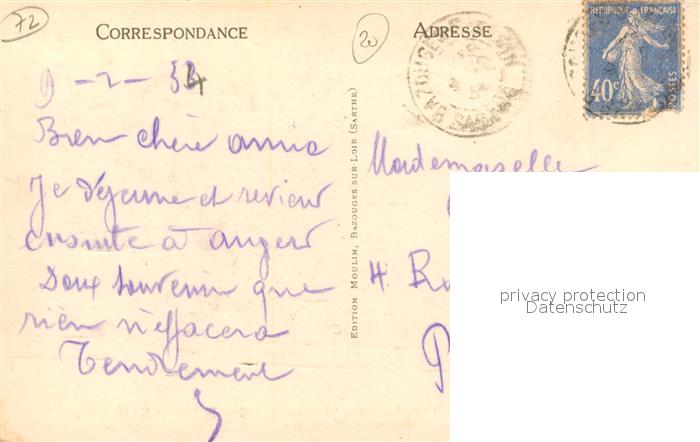 72
20
CORRESPONDANCE
ADRESSE
REPUBLIQUE FRANÇAISE
40c
POSTES
9 - 2 - 34
Bien chère amie
Je déjeune et revien
ensuite à Anger
Doux souvenir que
rien n'effacera
Tendrement
EDITION MOULIN, BAZOUGES-SUR-LOIR (SARTHE)
Mademoiselle
4. R
P
privacy protection
Datenschutz